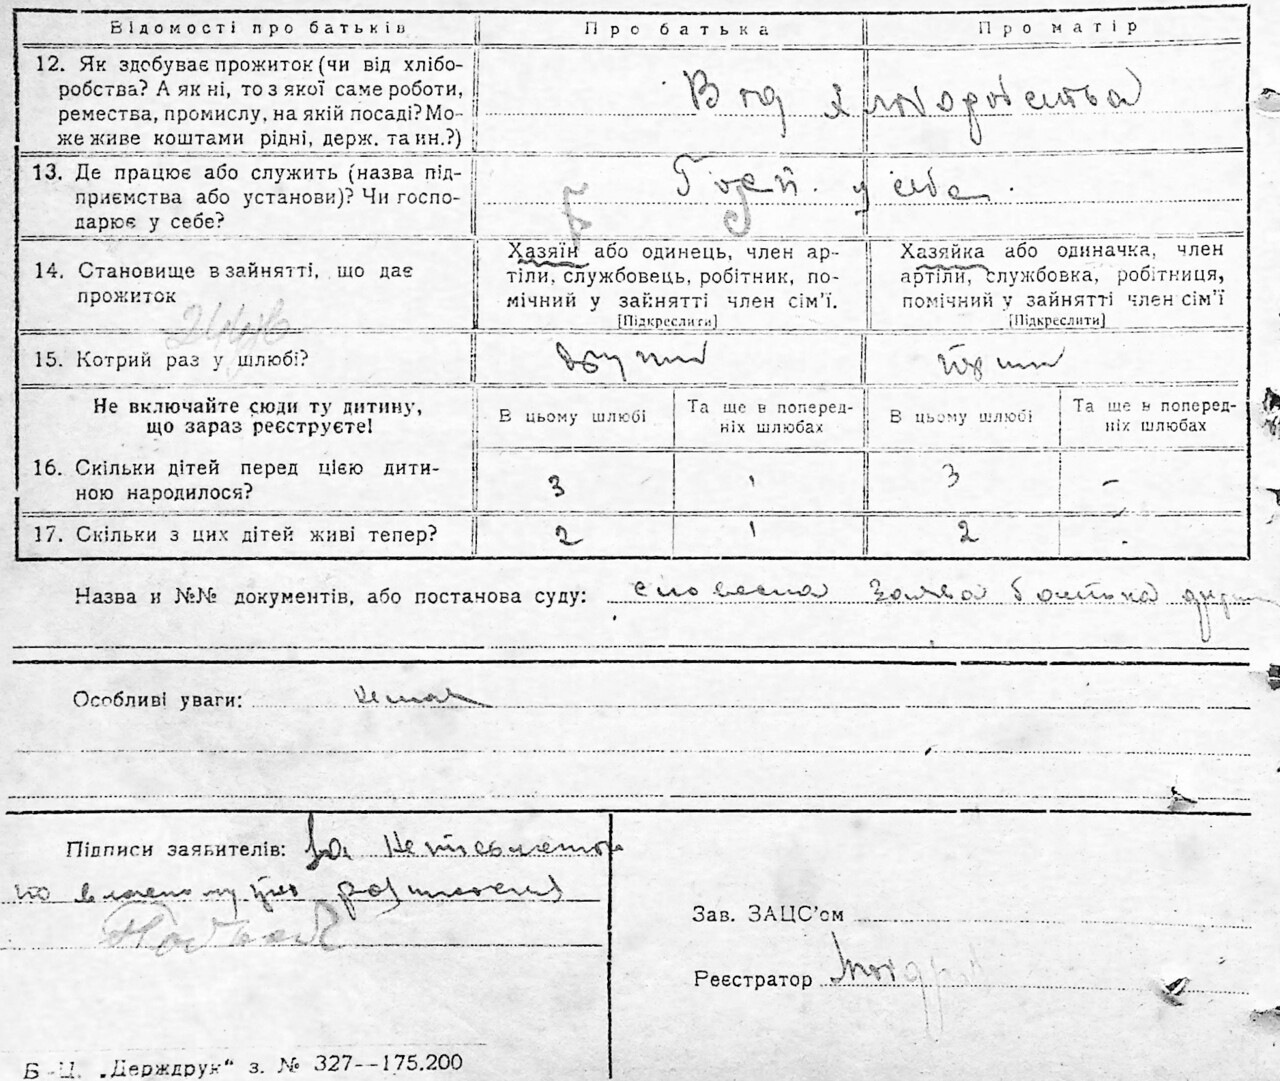 Відомості про батьків
Про батька
Про матір
12. Як здобуває прожиток (чи від хлібо-
робства? А як ні, то з якої саме роботи,
ремества, промислу, на якій посаді? Мо-
же живе коштами рідні, держ. та ин.?)
Від хліборобства
13. Де працює або служить (назва під-
приємства або установи)? Чи госпо-
дарює у себе?
Госп. у себе.
14. Становище в зайнятті, що дає
прожиток
Хазяїн або одинець, член ар-
тіли, службовець, робітник, по-
мічний у зайнятті член сім’ї.
[Підкреслити]
Хазяйка або одиначка, член
артіли, службовка, робітниця,
помічний у зайнятті член сім’ї
[Підкреслити]
15. Котрий раз у шлюбі?
другий
перший
Не включайте сюди ту дитину,
що зараз реєструєте!
В цьому шлюбі
Та ще в поперед-
ніх шлюбах
В цьому шлюбі
Та ще в поперед-
ніх шлюбах
16. Скільки дітей перед цією дити-
ною народилося?
3
1
3
-
17. Скільки з цих дітей живі тепер?
2
1
2
-
Назва и №№ документів, або постанова суду: словесна заява батька
Особливі уваги: немає
Підписи заявителів: за неписьменого
по власному його
Зав. ЗАЦС’ом
Реєстратор
Б-Ц. „Держдрук“ з. № 327--175.200